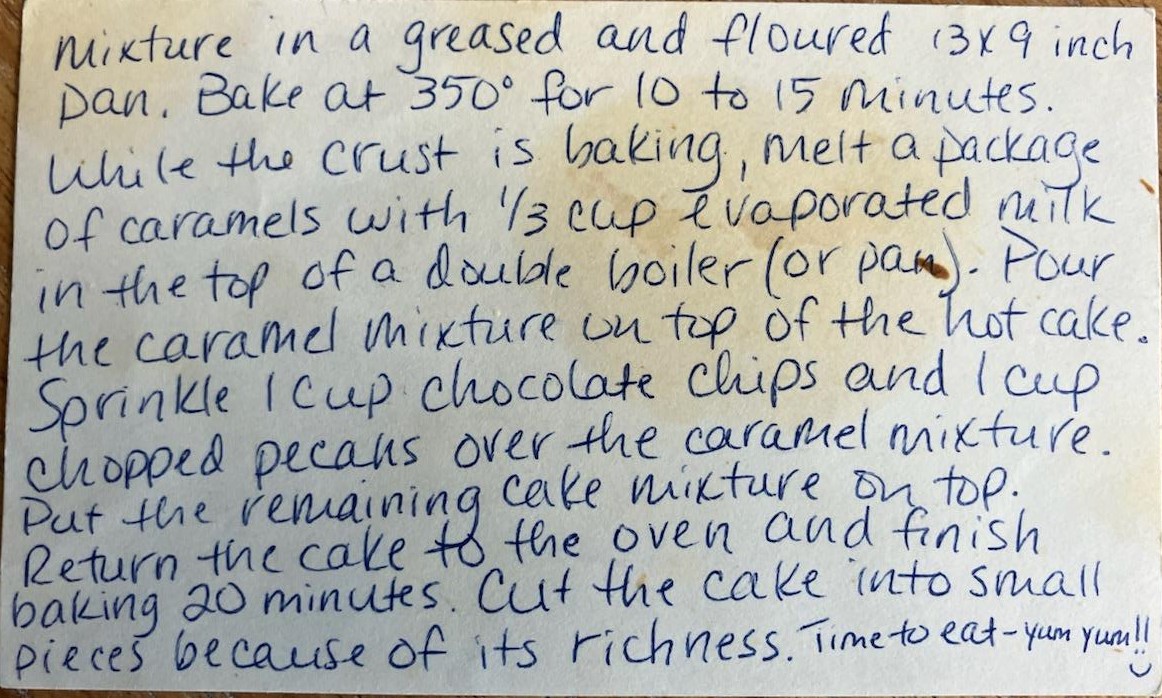 mixture in a greased and floured 13x9 inch
pan. Bake at 350° for 10 to 15 minutes.
While the crust is baking, melt a package
of caramels with 1/3 cup evaporated milk
in the top of a double boiler (or pan). Pour
the caramel mixture on top of the hot cake.
Sprinkle 1 cup chocolate chips and 1 cup
chopped pecans over the caramel mixture.
Put the remaining cake mixture on top.
Return the cake to the oven and finish
baking 20 minutes. Cut the cake into small
pieces because of its richness. Time to eat - yum yum!!